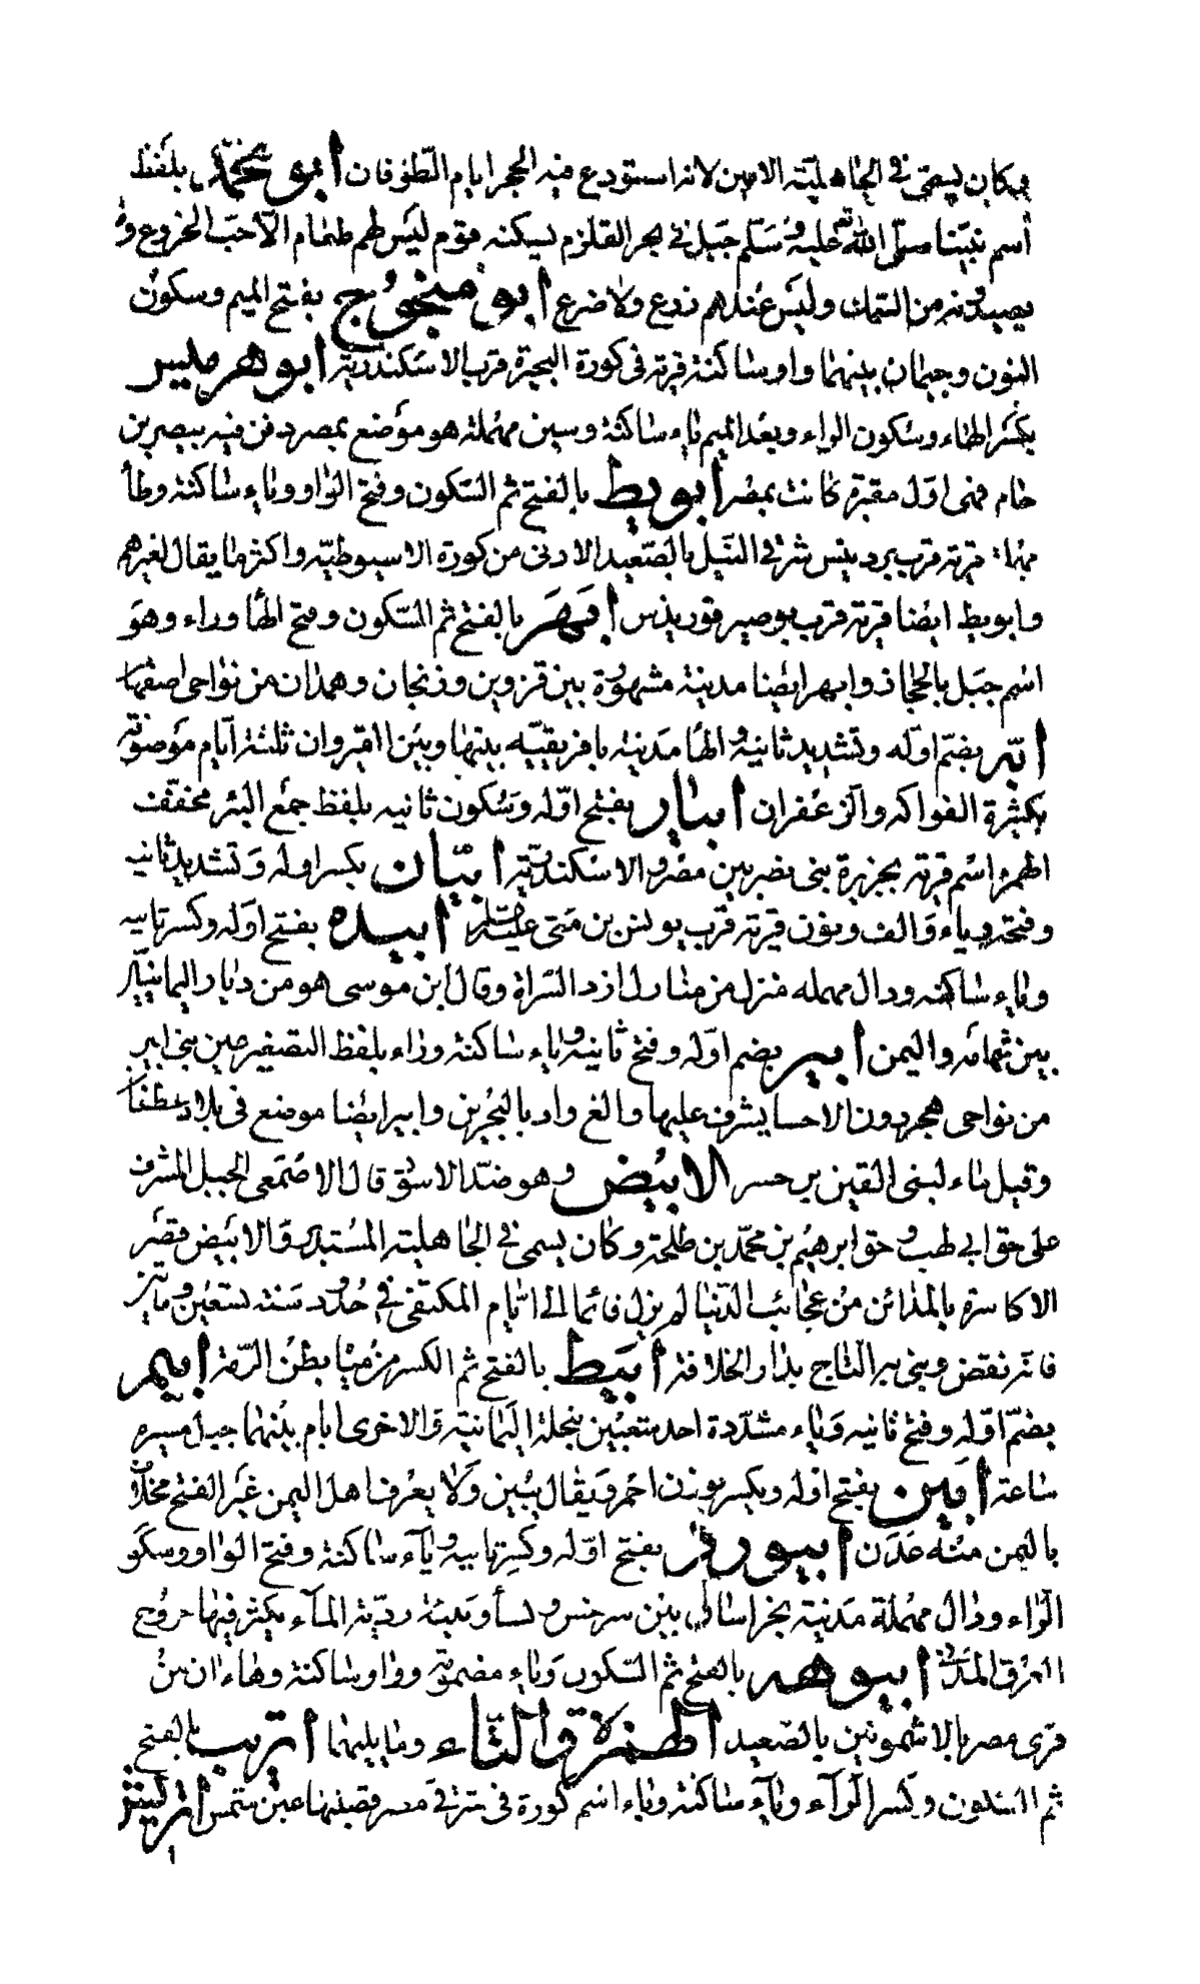 وكان يسمى في الجاهلية الامين لانه استودع فيه الحجر ايام الطوفان أبو محمد بلفظ
أسم نبينا صلى الله تعالى عليه وسلم جبل في بحر القلزم يسكنه قوم ليس لهم طعام الا حب الخروع وما
يصيدونه من السمك وليس عندهم زرع ولا ضرع أبو منجوج بفتح الميم وسكون
النون وجيمان بينهما واو ساكنة قرية في كورة البحيرة قرب الاسكندرية أبو هرميس
بكسر الهاء وسكون الراء وبعد الميم ياء ساكنة وسين مهملة هو موضع بمصر دفن فيه بيصر بن
حام فهى اول مقبرة كانت بمصر أبويط بالفتح ثم السكون وفتح الواو وياء ساكنة وطأ
مهملة قرية قرب بردنيس شرقي النيل بالصعيد الادنى من كورة الاسيوطية واكثرهما يقال لغيرهم
وابويط ايضا قرية قرب بوصير قوريذس أبهر بالفتح ثم السكون وفتح الها وراء وهو
اسم جبل بالحجاز وابهر ايضا مدينة مشهورة بين قزوين وزنجان وهمدان من نواحى اصفهان
أبه بضم اوله وتشديد ثانيه والها مدينة بافريقيه بينها وبين القيروان ثلثة ايام موصوفة
بكثرة الفواكه والزعفران أبيار بفتح اوله وسكون ثانيه بلفظ جمع البئر مخفف
الهمزة اسم قرية بجزيرة بنى نصر بين مصر والاسكندرية أبيان بكسر اوله وتشديد ثانيه
وفتحه وياء والف ونون قرية قرب يونس بن متى عليه السلام أبيده بفتح اوله وكسر ثانيه
وياء ساكنه ودال مهمله منزل من منازل ازد السراة وقال ابن موسى هو من ديار اليمانيين
بين تهامه واليمن أبير بضم اوله وفتح ثانيه وياء ساكنة وراء بلفظ التصغير عين بنى ابير
من نواحى هجر دون الاحسا يشرف عليها والغ واد بالبحرين وابير ايضا موضع في بلاد غطفان
وقيل ماء لبنى القين بن جسر الابيض وهو ضد الاسود قال الاصمعى الجبل المشرف
على حق ابي لهب وحق ابرهيم بن محمد بن طلحة وكان يسمى في الجاهلية المستبذر والابيض قصر
الاكاسرة بالمدائن من عجائب الدنيا لم يزل قائما الى ايام المكتفى في حدود سنة تسعين ومايتين
فانه نقض وبنى به التاج بدار الخلافة أبيط بالفتح ثم الكسر من مياه بطن الرمة أبيم
بضم اوله وفتح ثانيه وياء مشددة احد شعبين بنخلة اليمانية والاخرى ابام بينهما جبل مسيره
ساعة أبين بفتح اوله ويكسر بوزن احمر ويقال يبين ولا يعرف اهل اليمن غير الفتح مخلاف
باليمن منه عدن أبيورد بفتح اوله وكسر ثانيه وياء ساكنة وفتح الواو وسكون
الراء ودال مهملة مدينة بخراسان بين سرخس ونسأ وبيئة ردية المآء يكثر فيها خروج
العرق المدنى أبيوهه بالفتح ثم السكون وياء مضمومة وواو ساكنة وهاءان من
قرى مصر بالاشمونين بالصعيد الهمزة والتاء وما يليهما أتريب بالفتح
ثم السكون وكسر الرآء ويآء ساكنة وباء اسم كورة فى شرقي مصر قصبتها عين شمس اتريش